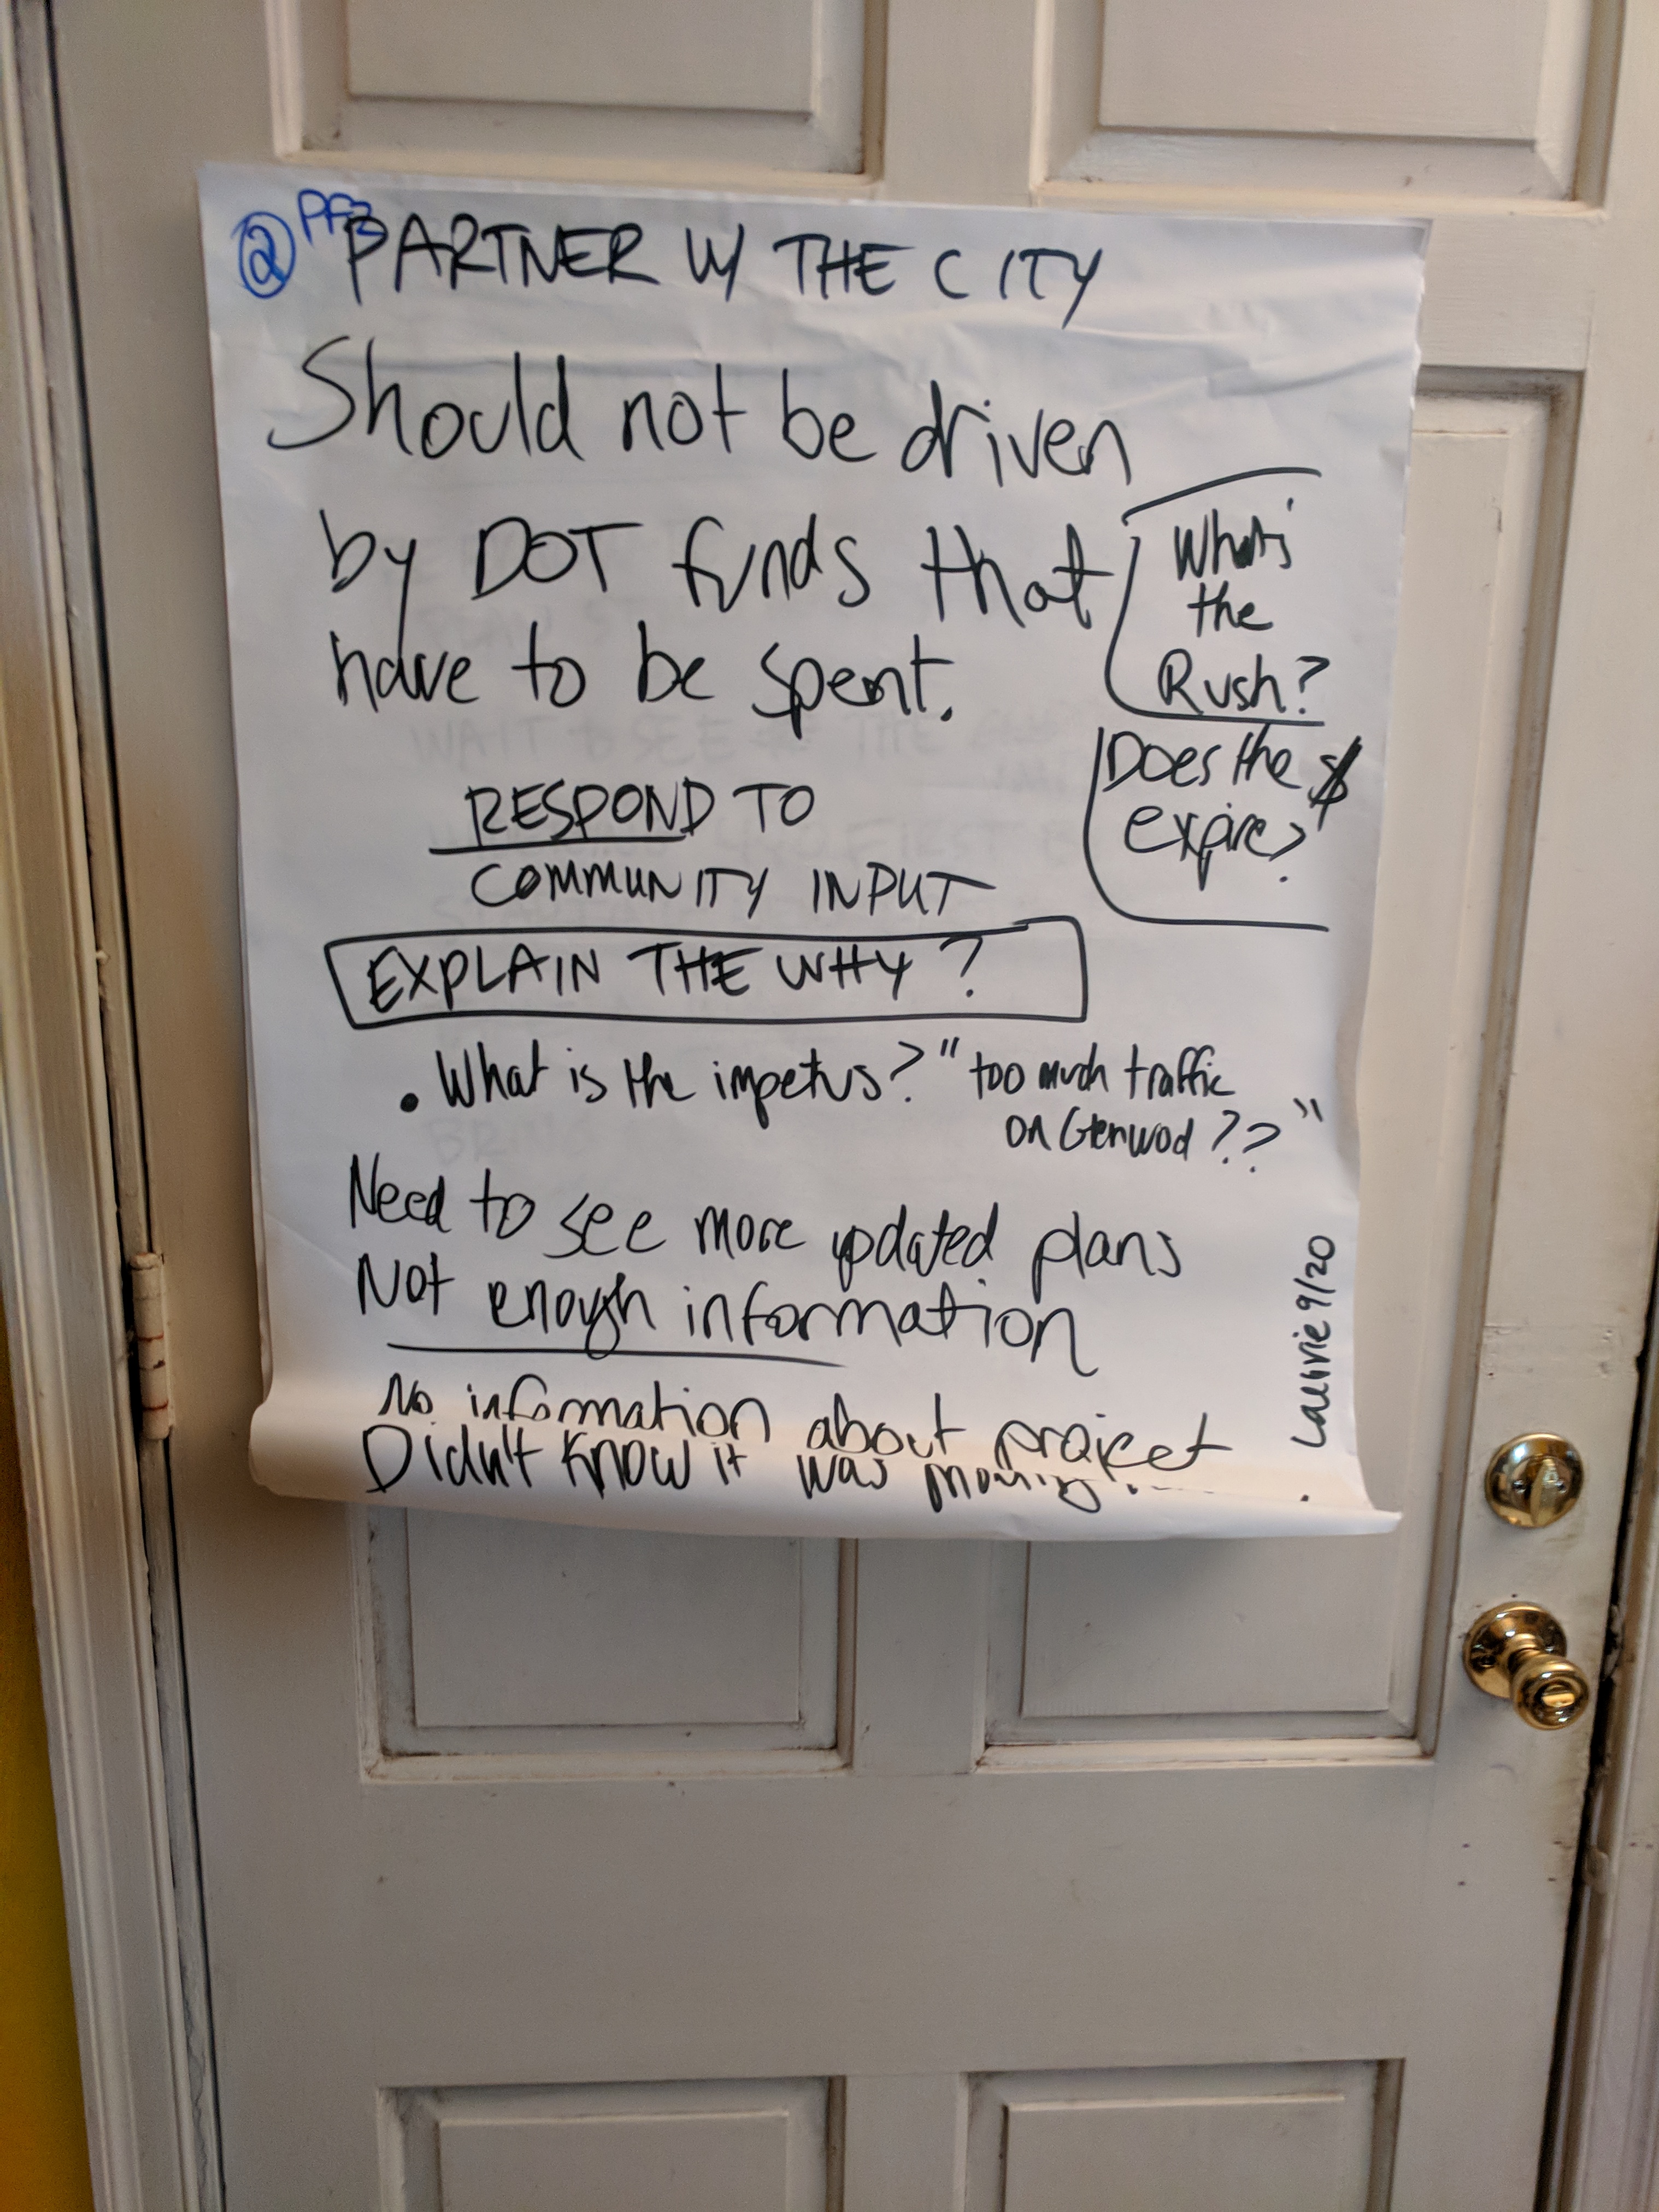 ② PF2
PARTNER W/ THE CITY
Should not be driven
by DOT funds that
have to be spent.
What's
the
Rush?
Does the $
expire?
RESPOND TO
COMMUNITY INPUT
EXPLAIN THE WHY?
• What is the impetus? "too much traffic
on Glenwod??"
Need to see more updated plans
Not enough information
No information about project
Didn't know it was moving
Laurie 9/20